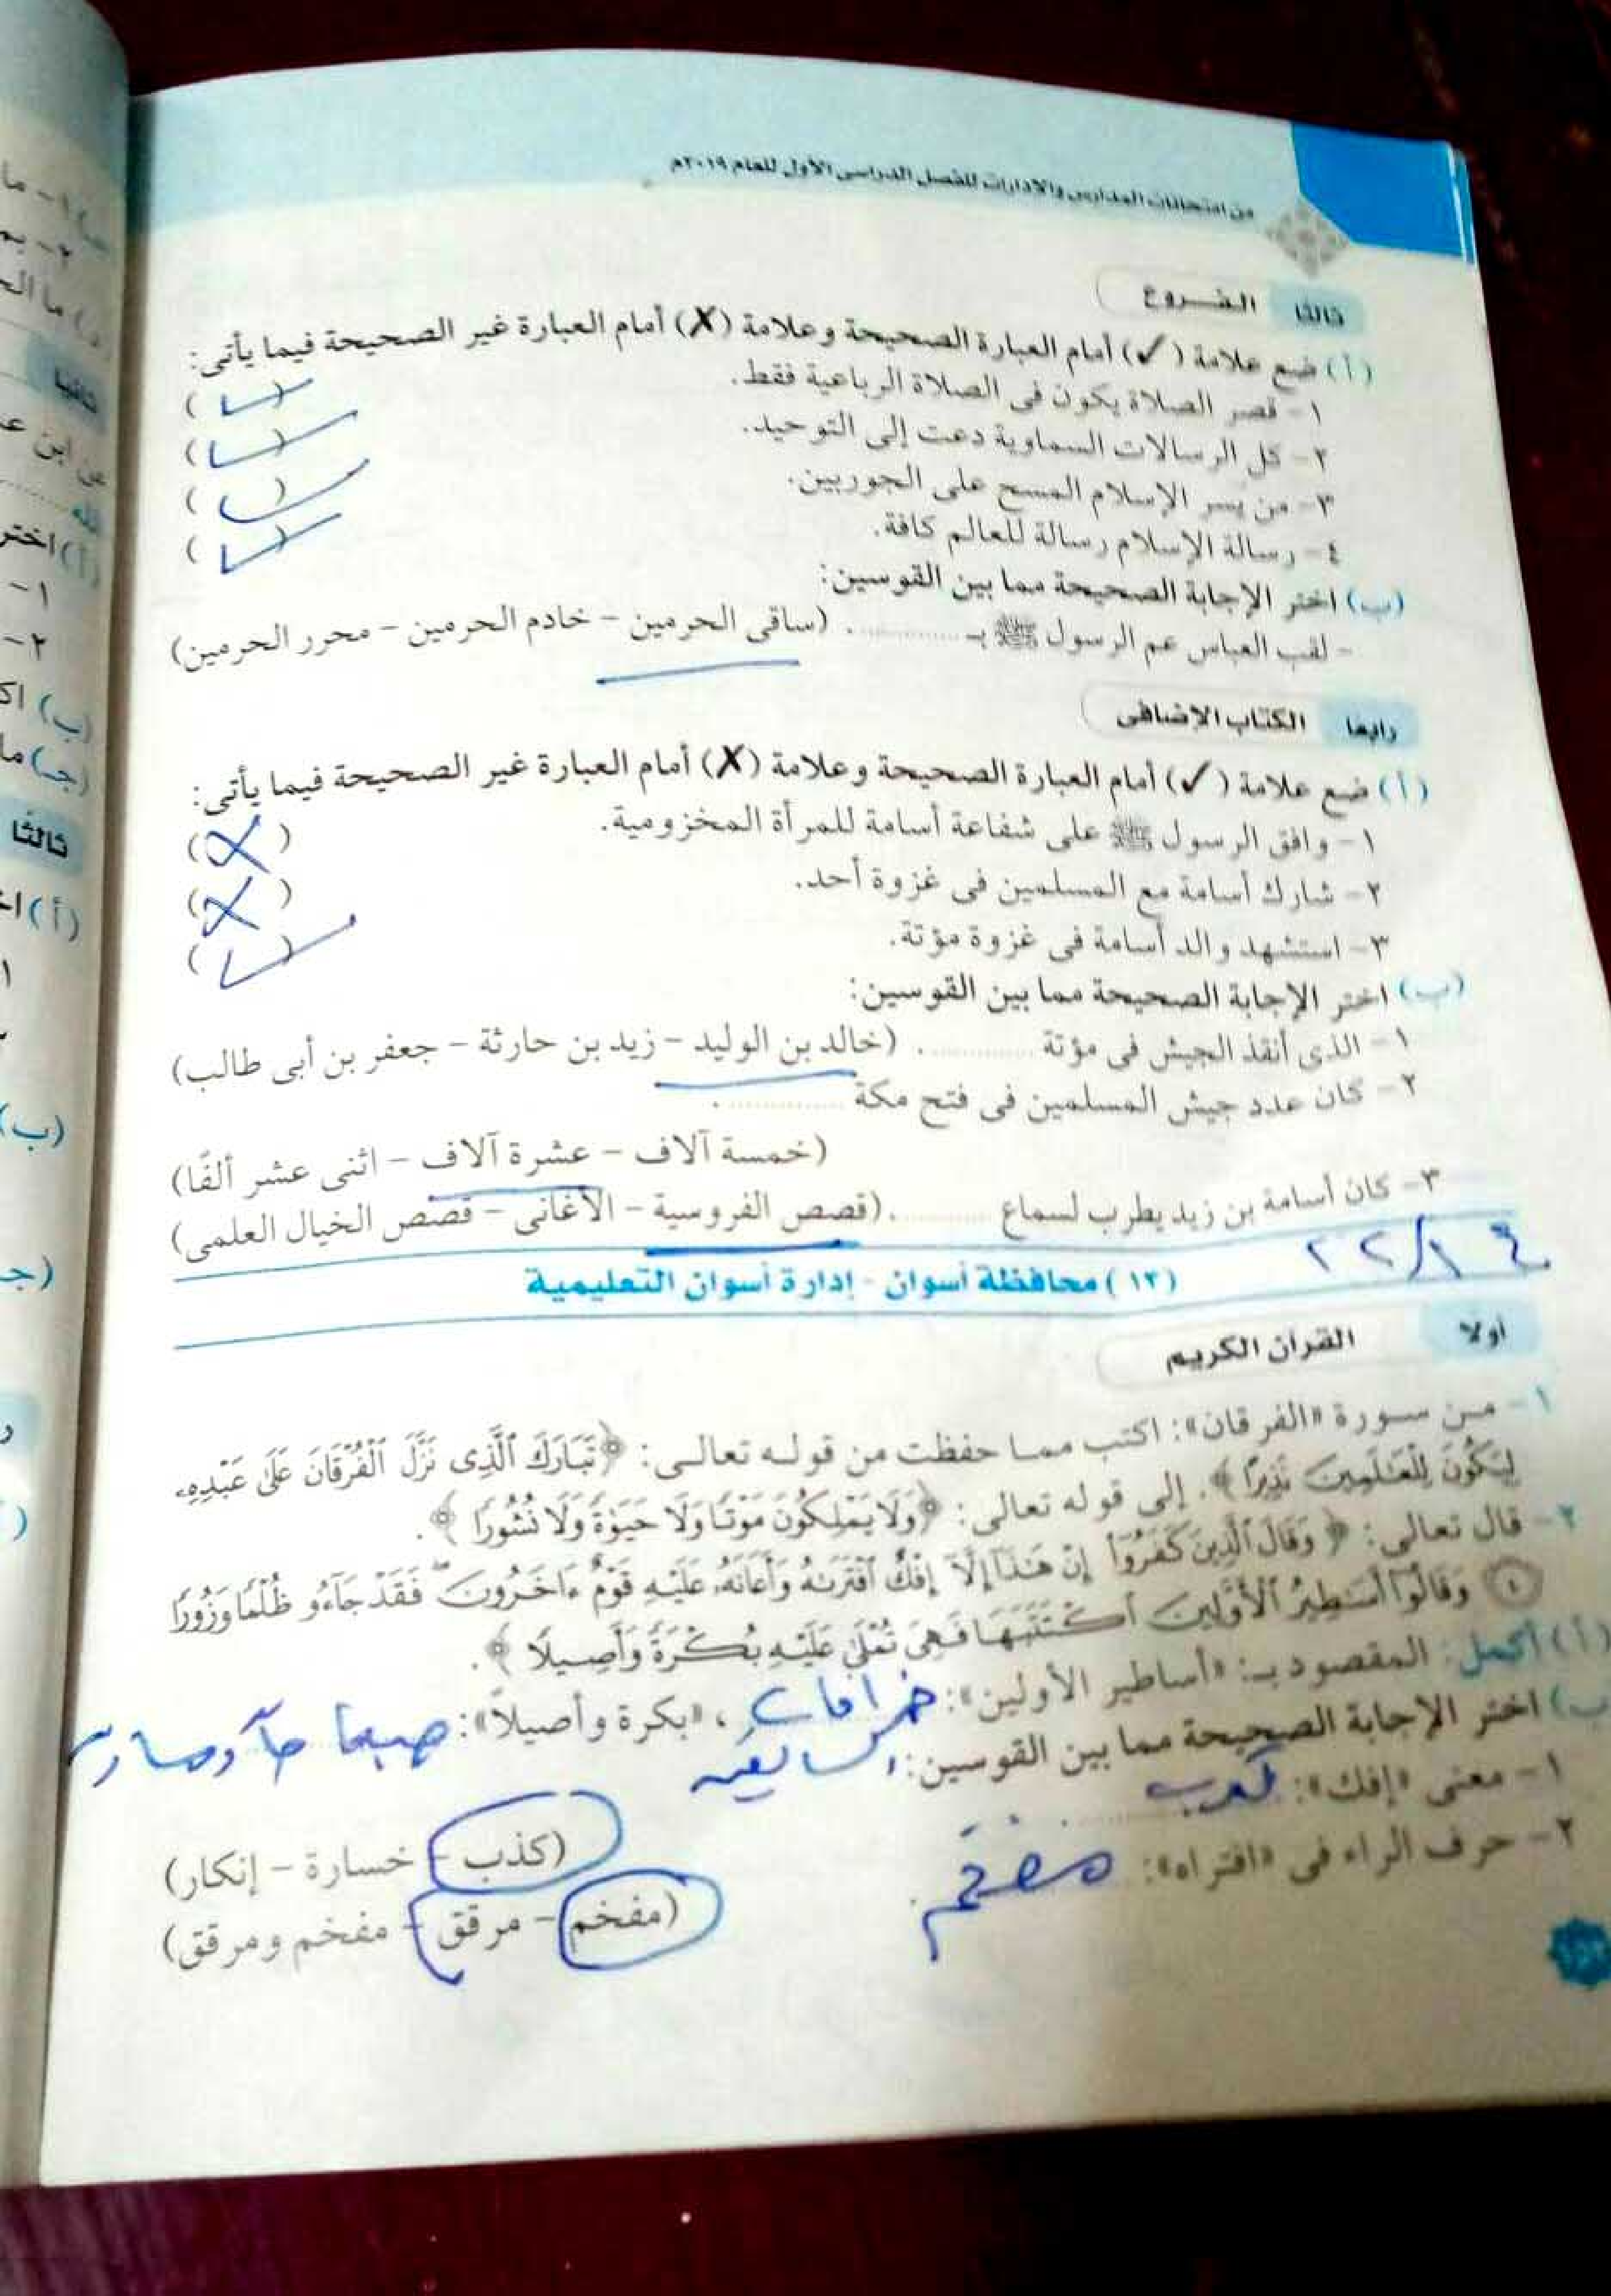 من امتحانات المدارس والإدارات للفصل الدراسى الأول للعام ٢٠١٩م
ثالثا الفروع
(أ) ضع علامة (✓) أمام العبارة الصحيحة وعلامة (X) أمام العبارة غير الصحيحة فيما يأتى:
١- قصر الصلاة يكون فى الصلاة الرباعية فقط. (✓)
٢- كل الرسالات السماوية دعت إلى التوحيد. (✓)
٣- من يسر الإسلام المسح على الجوربين. (✓)
٤- رسالة الإسلام رسالة للعالم كافة. (✓)
(ب) اختر الإجابة الصحيحة مما بين القوسين:
- لقب العباس عم الرسول ﷺ بـ ............ . (ساقى الحرمين - خادم الحرمين - محرر الحرمين)
رابعا الكتاب الإضافى
(أ) ضع علامة (✓) أمام العبارة الصحيحة وعلامة (X) أمام العبارة غير الصحيحة فيما يأتى:
١- وافق الرسول ﷺ على شفاعة أسامة للمرأة المخزومية. (X)
٢- شارك أسامة مع المسلمين فى غزوة أحد. (X)
٣- استشهد والد أسامة فى غزوة مؤتة. (✓)
(ب) اختر الإجابة الصحيحة مما بين القوسين:
١- الذى أنقذ الجيش فى مؤتة ............ . (خالد بن الوليد - زيد بن حارثة - جعفر بن أبى طالب)
٢- كان عدد جيش المسلمين فى فتح مكة ............ .
(خمسة آلاف - عشرة آلاف - اثنى عشر ألفًا)
٣- كان أسامة بن زيد يطرب لسماع ............ . (قصص الفروسية - الأغانى - قصص الخيال العلمى)
(١٢) محافظة أسوان - إدارة أسوان التعليمية
أولا القرآن الكريم
١- من سورة «الفرقان»: اكتب مما حفظت من قوله تعالى: ﴿تَبَارَكَ ٱلَّذِى نَزَّلَ ٱلْفُرْقَانَ عَلَىٰ عَبْدِهِۦ
لِيَكُونَ لِلْعَـٰلَمِينَ نَذِيرًا﴾. إلى قوله تعالى: ﴿وَلَا يَمْلِكُونَ مَوْتًا وَلَا حَيَوٰةً وَلَا نُشُورًا﴾.
٢- قال تعالى: ﴿وَقَالَ ٱلَّذِينَ كَفَرُوٓا۟ إِنْ هَـٰذَآ إِلَّآ إِفْكٌ ٱفْتَرَىٰهُ وَأَعَانَهُۥ عَلَيْهِ قَوْمٌ ءَاخَرُونَ ۖ فَقَدْ جَآءُو ظُلْمًا وَزُورًا
٤ وَقَالُوٓا۟ أَسَـٰطِيرُ ٱلْأَوَّلِينَ ٱكْتَتَبَهَا فَهِىَ تُمْلَىٰ عَلَيْهِ بُكْرَةً وَأَصِيلًا﴾.
(أ) أكمل: المقصود بـ: «أساطير الأولين»: خرافات السابقين ، «بكرة وأصيلاً»: صباحًا ومساءً
(ب) اختر الإجابة الصحيحة مما بين القوسين:
١- معنى «إفك»: كذب
(كذب - خسارة - إنكار)
٢- حرف الراء فى «افتراه»: مفخم
(مفخم - مرقق - مفخم ومرقق)